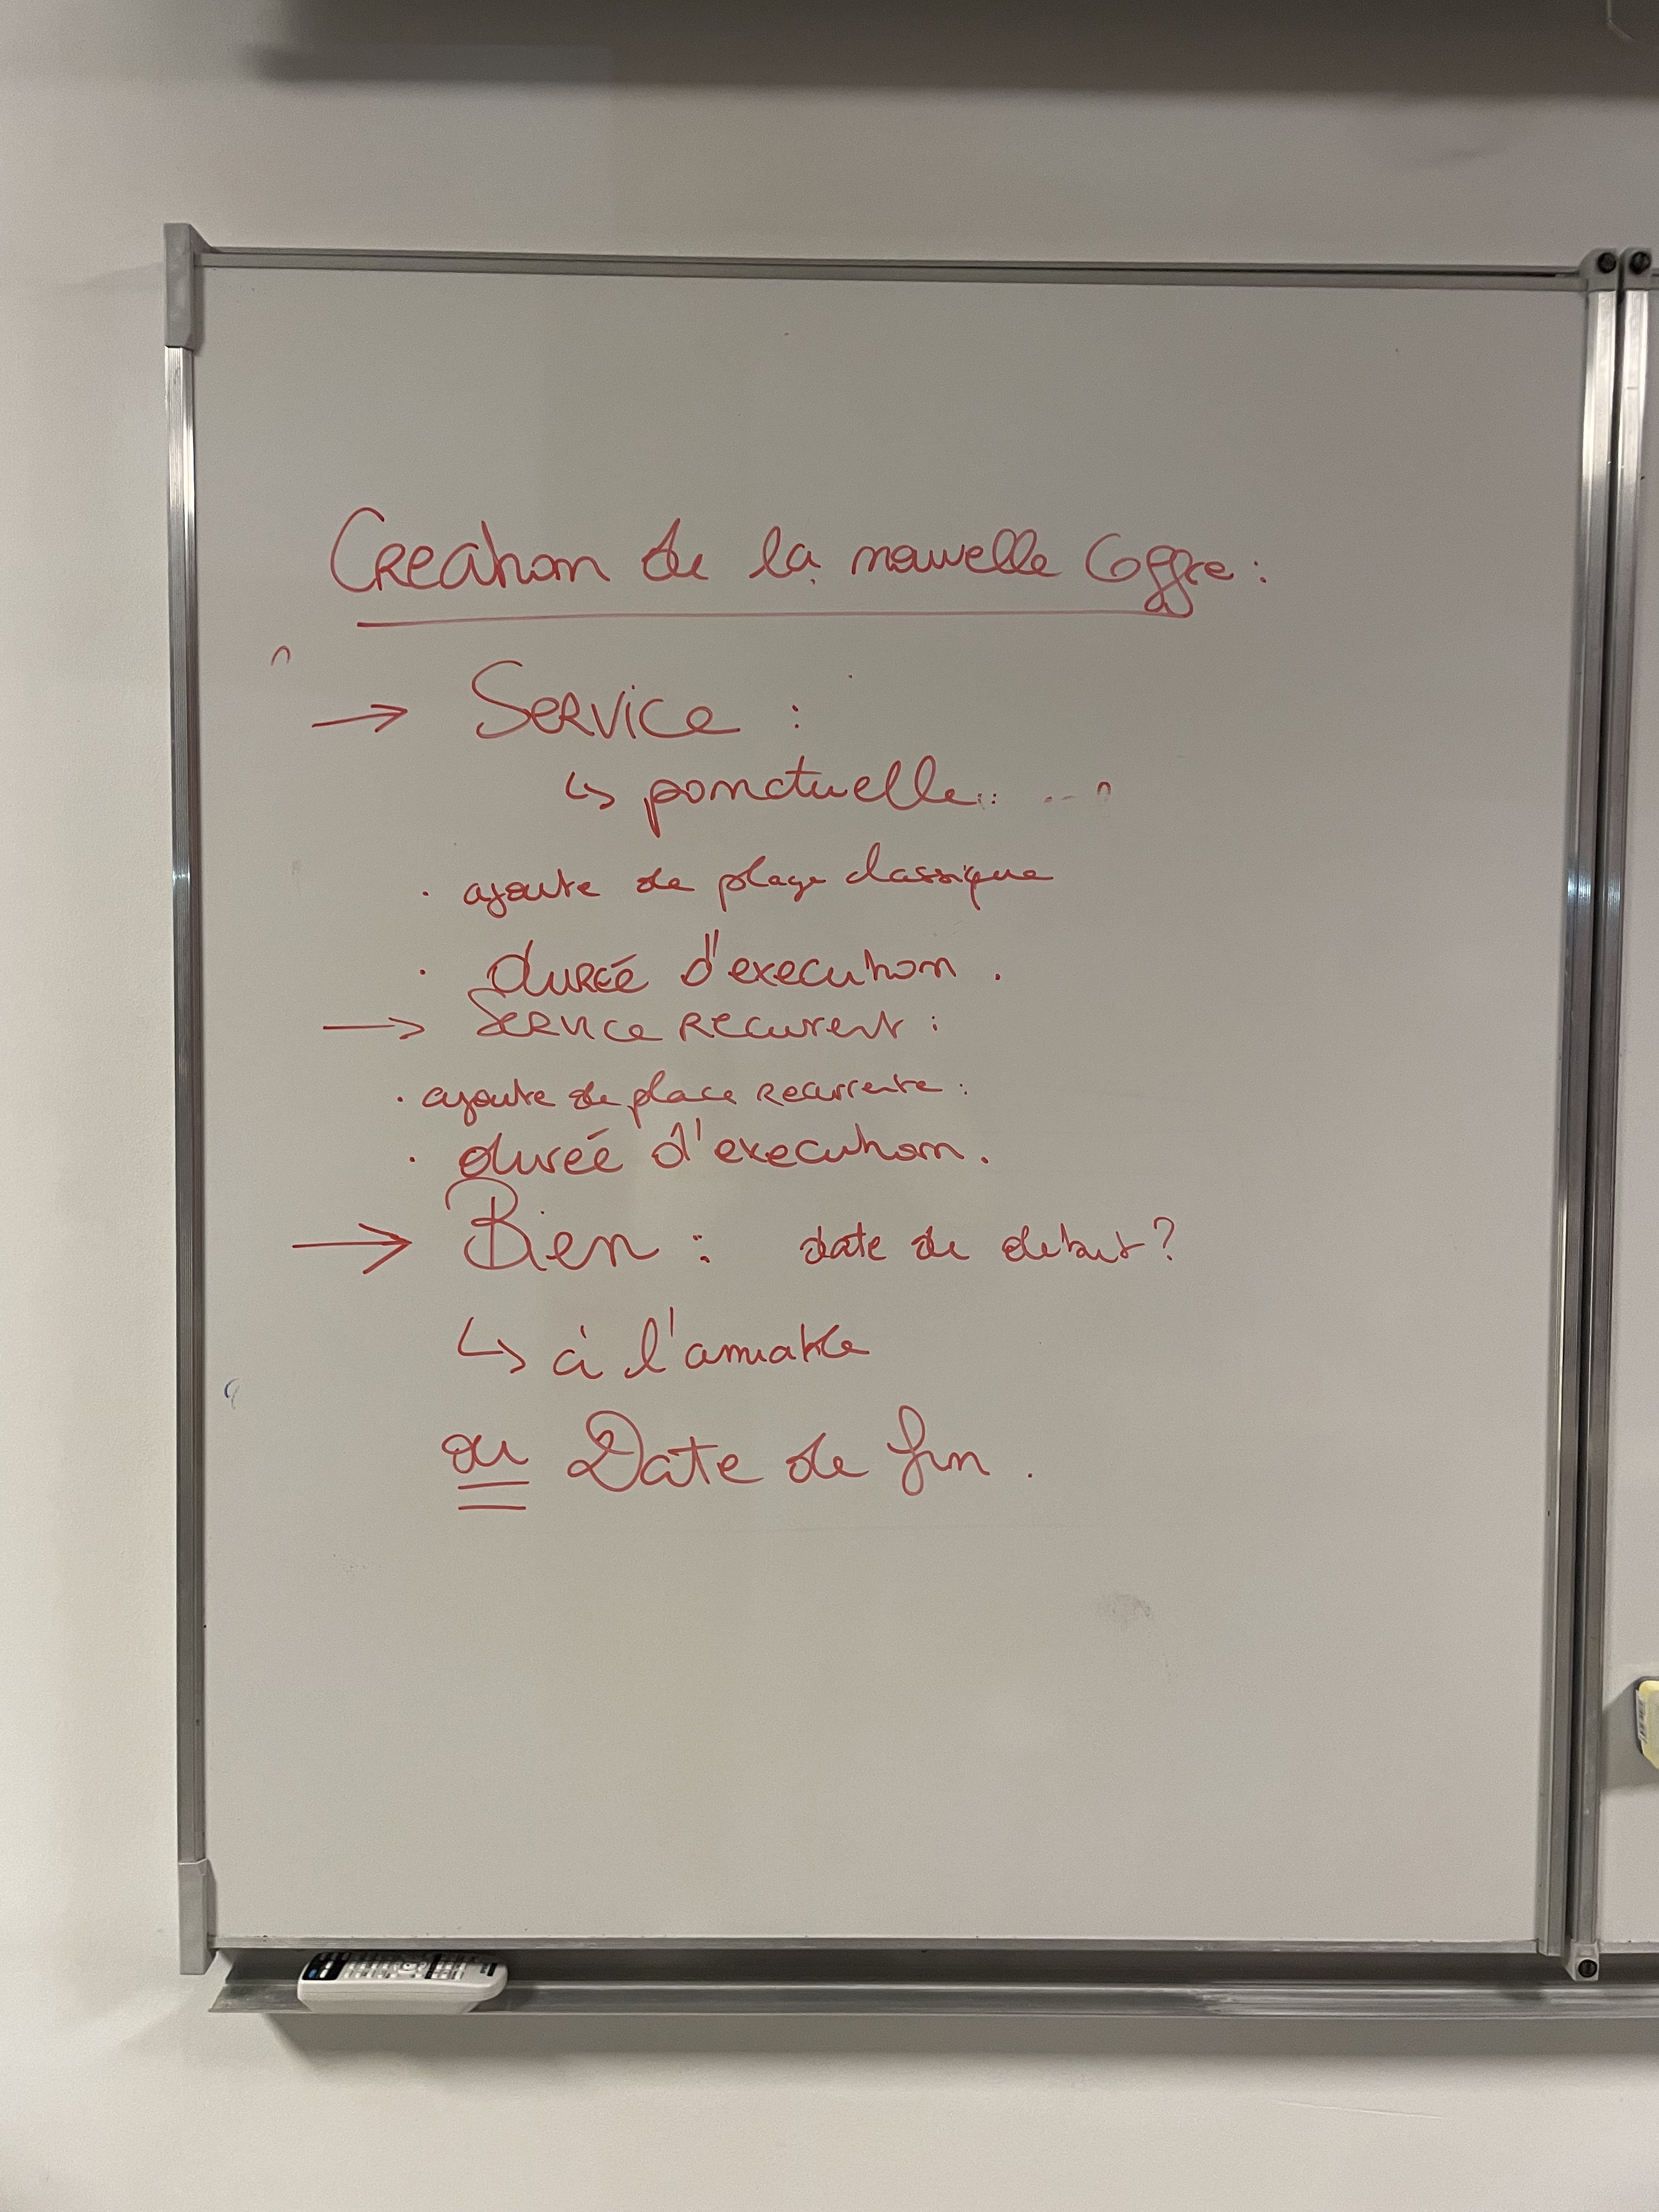 Creation de la nouvelle offre :
→ Service :
↳ ponctuelle
. ajoute de plage classique
. durée d'execution .
→ Service recurent :
. ajoute de place recurrente :
. durée d'execution .
→ Bien : date de debut ?
↳ à l'amiable
ou Date de fin .